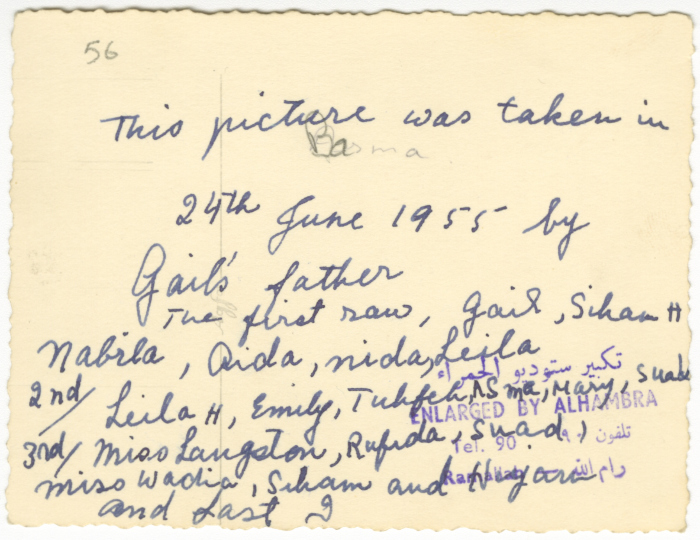 56
This picture was taken in
Basma
24th June 1955 by
Gail's father
The first raw, Gail, Siham H
Nabila, Aida, nida, Leila
تكبير ستوديو الحمراء
2nd/ Leila H, Emily, Tuhfeh, ASma, Mary, Suad
ENLARGED BY ALHAMBRA
3rd/ Miss Langston, Rufida, Suad,
Tel. 90 تلفون ٩٠
miss Wadia, Siham and
Ramallah رام الله
and Last I